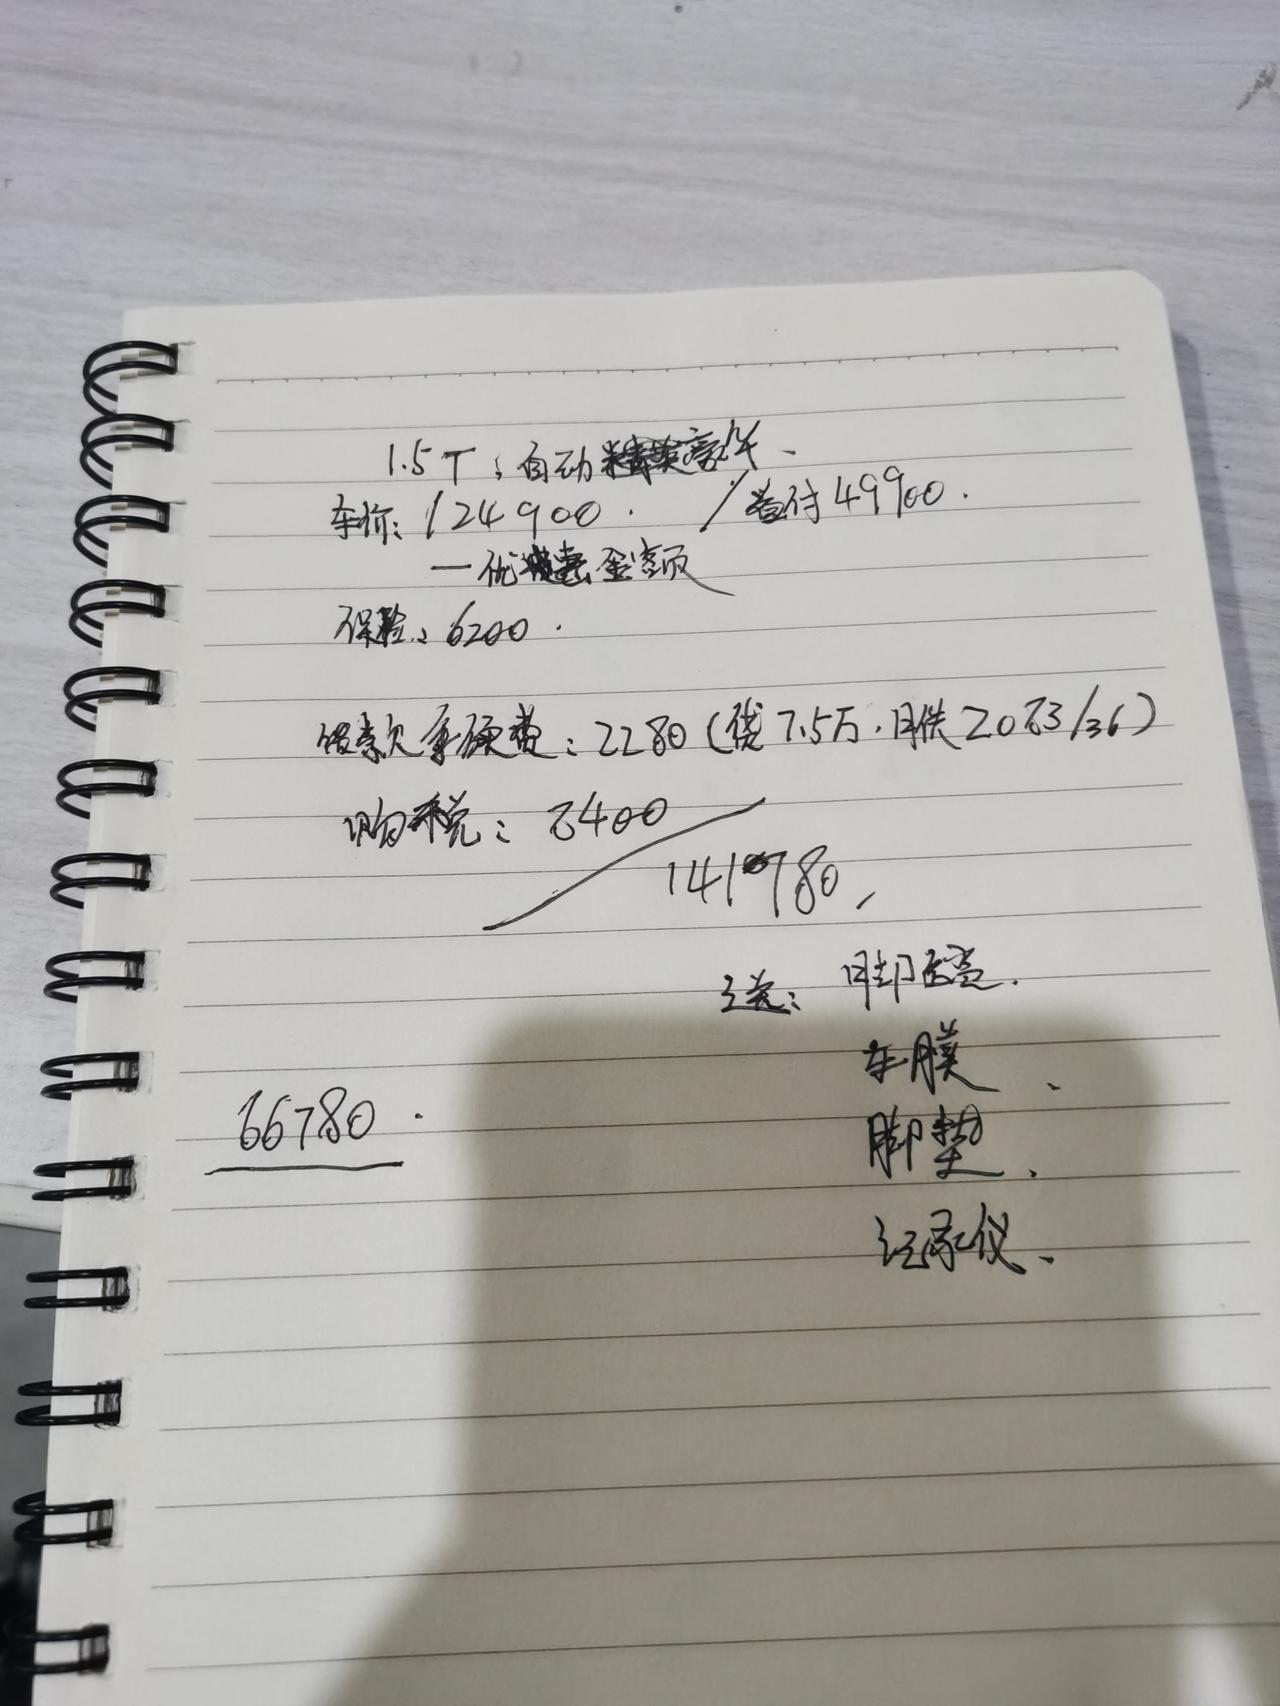 1.5T：自动精英豪华、
车价：124900． /首付49900．
—优惠金额
保险：6200．
贷款手续费：2280（贷7.5万．月供2083/36）
购税：8400
141780，
送：脚底盘．
车膜、
脚垫、
记录仪、
66780．